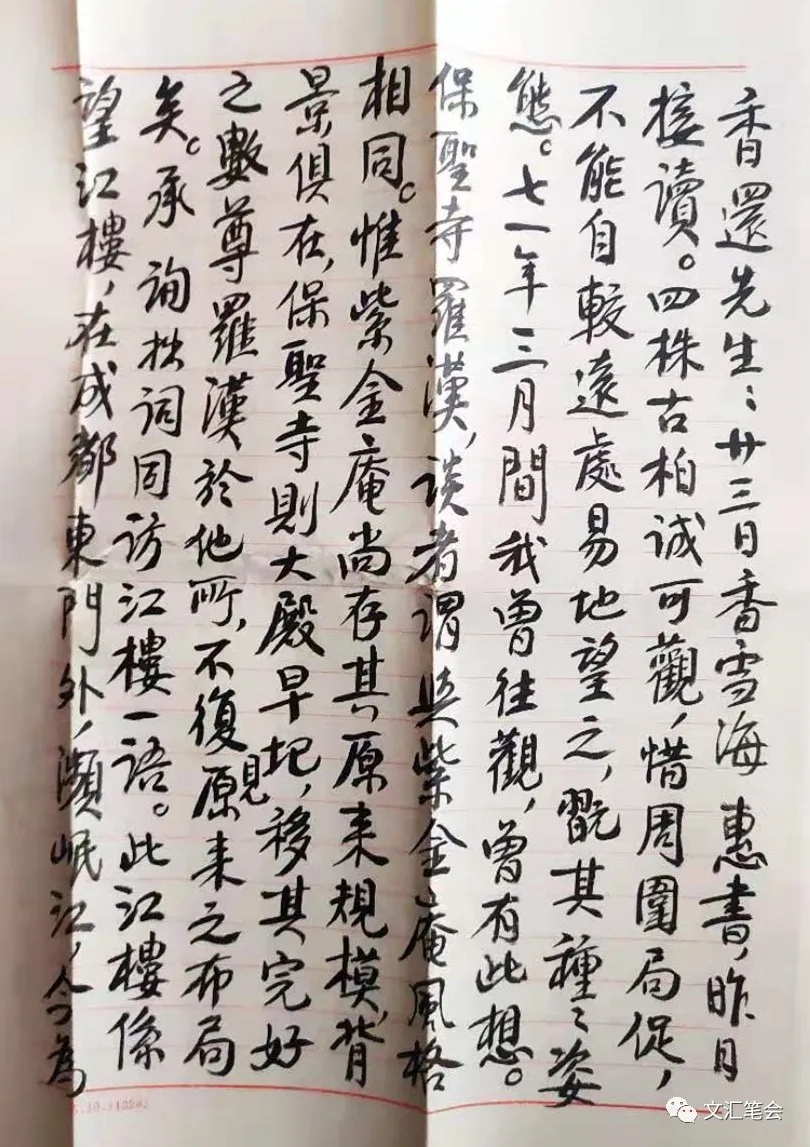 香還先生：廿三日香雪海 惠書，昨日
接讀。四株古柏誠可觀，惜周圍局促，
不能自較遠處易地望之，翫其種〻姿
態。七一年三月間我曾往觀，曾有此想。
保聖寺羅漢，談者謂與紫金庵風格
相同。惟紫金庵尚存其原来規模，背
景俱在，保聖寺則大殿早圮，移其完好
之數尊羅漢於他所，不復見原来之布局
矣。承 詢拙词同访江樓一語。此江樓係
望江樓，在成都東門外，瀕岷江，今為
文汇笔会